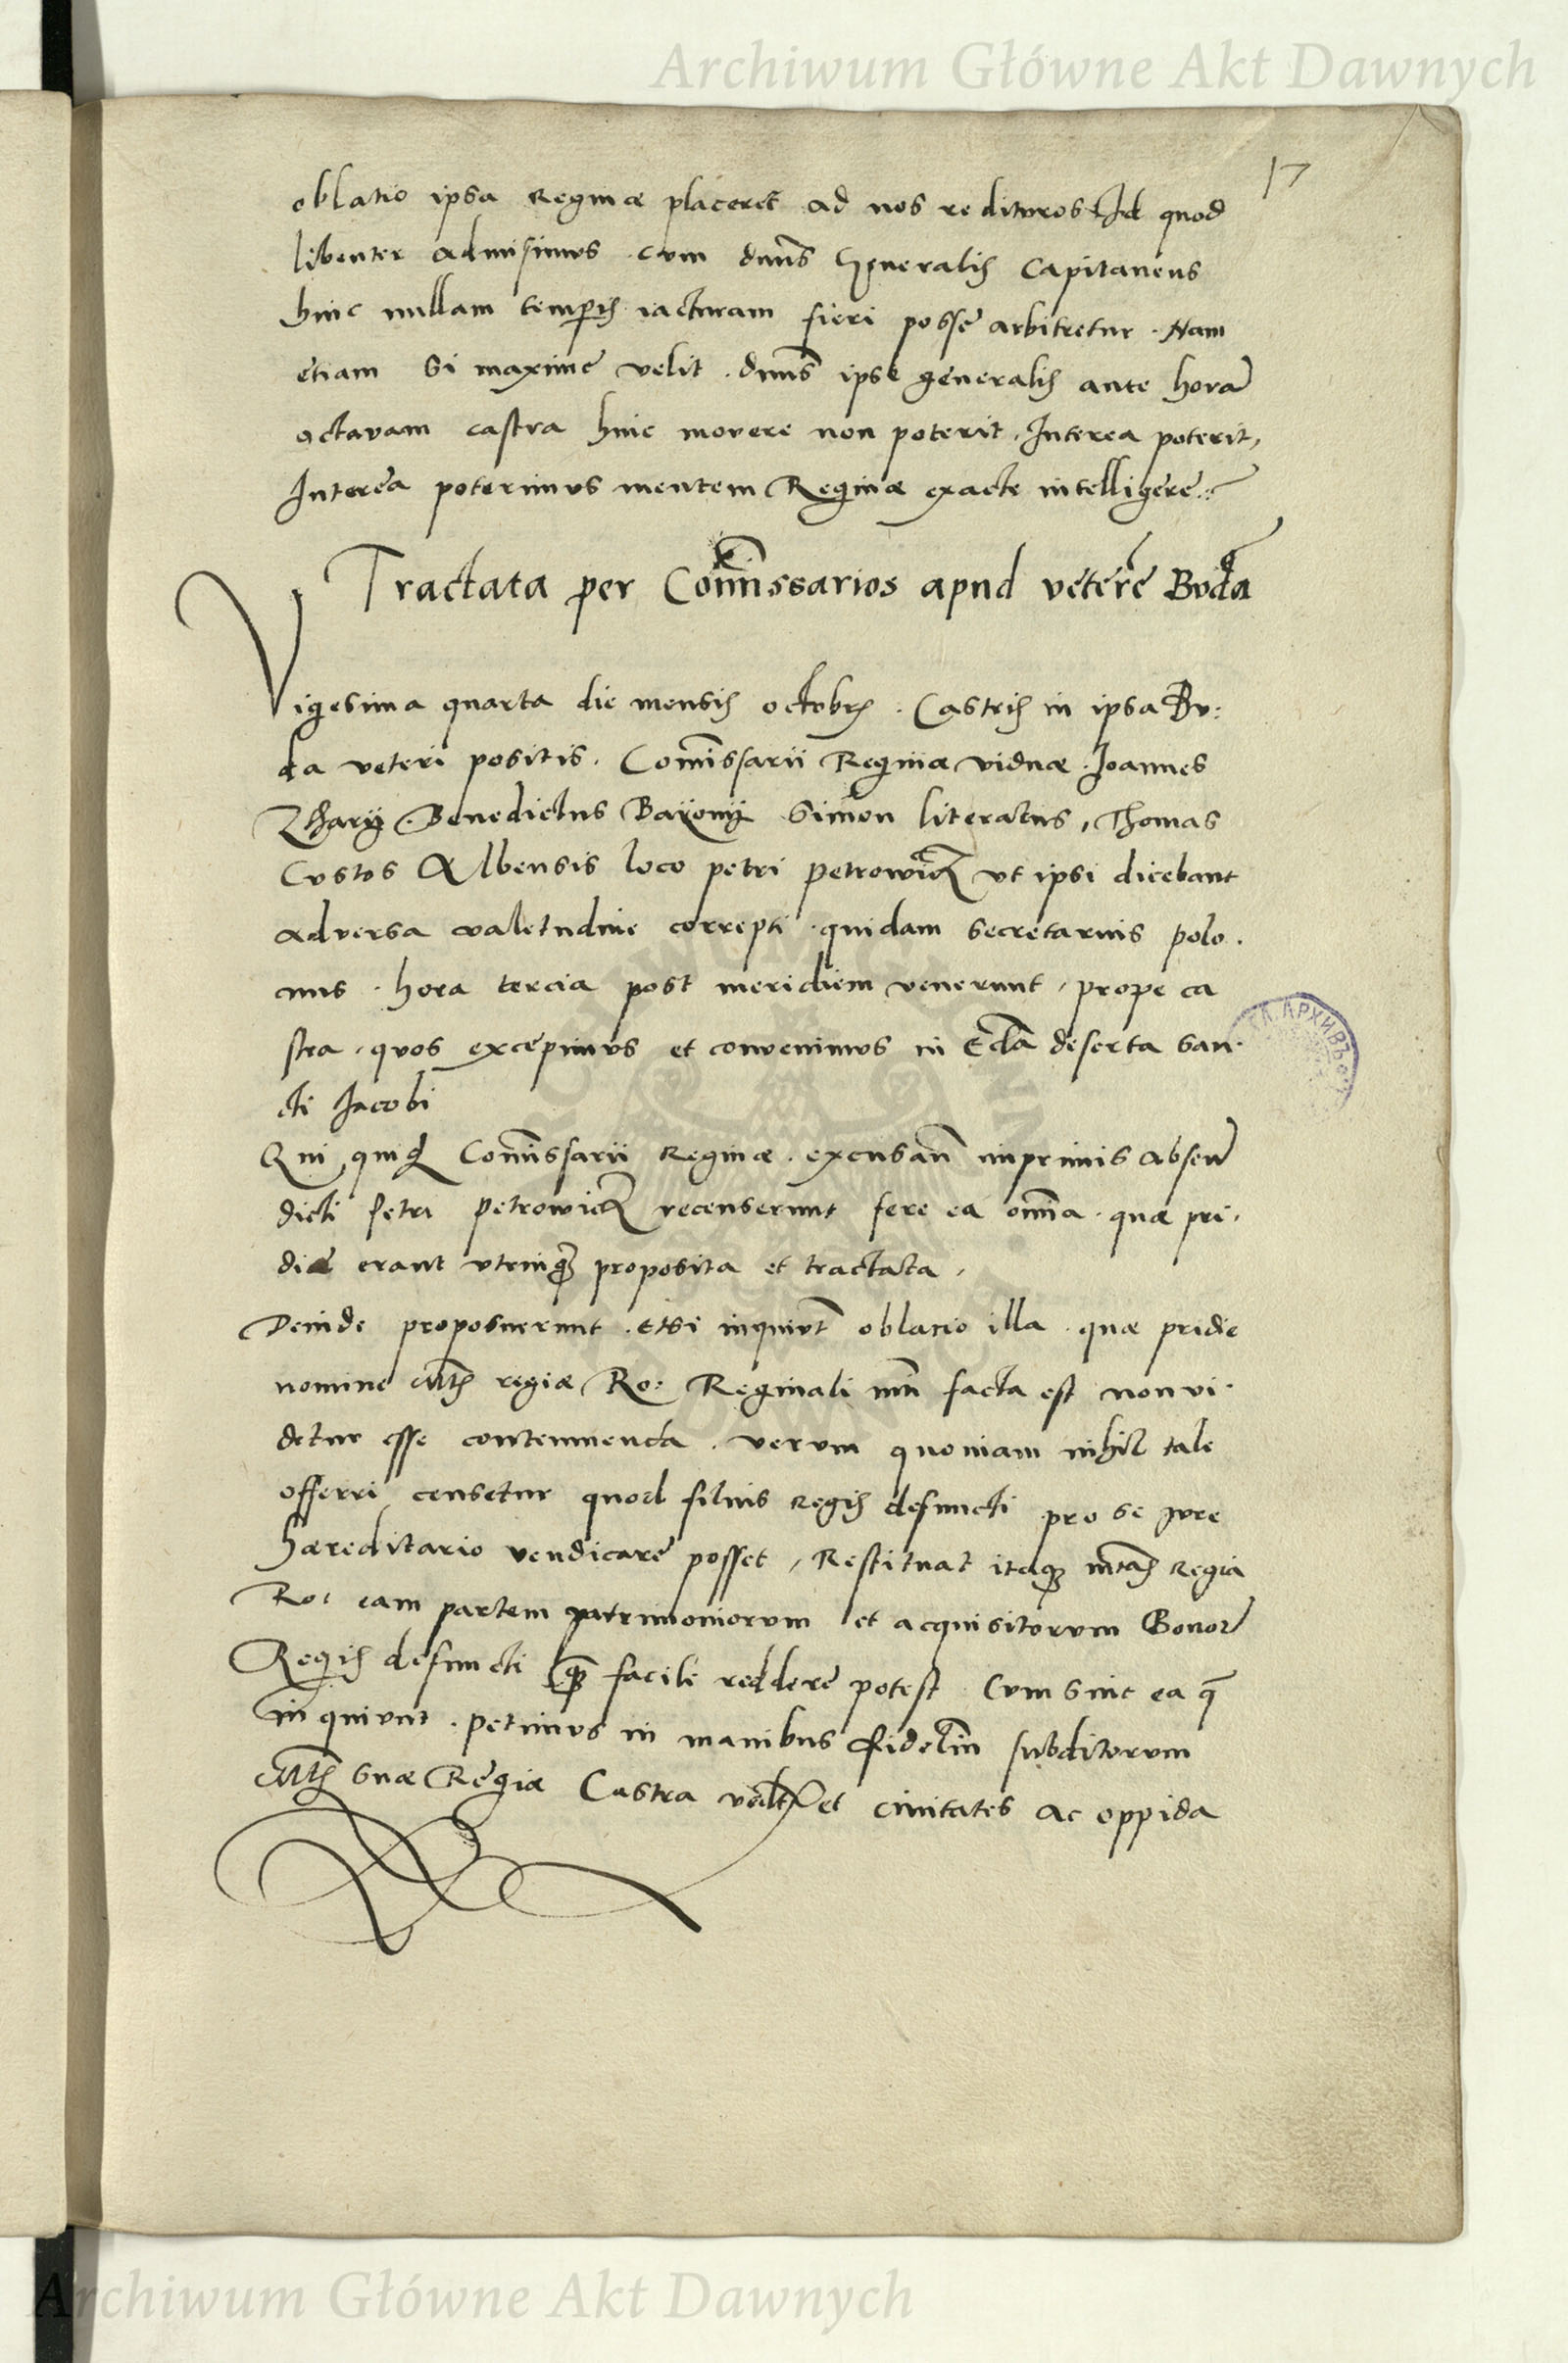 Archiwum Główne Akt Dawnych
17
oblatio ipsa Reginæ placeret ad nos redituros Id quod
libenter admisimus . cum dnns Generalis Capitaneus
hinc nullam temporis iacturam fieri posse arbitretur . Nam
etiam si maxime velit . dnns ipse generalis ante horā
octavam castra hinc movere non poterit . Interea poterit,
Interea poterimus mentem Reginæ exacte intelligere
Tractata per Com̄issarios apud veterē Budā
Vigesima quarta die mensis octobris . Castris in ipsa Bu:
da veteri positis . Com̄issarii Reginæ viduæ . Joannes
Benedictus Simon literatus, Thomas
Custos Albensis loco petri ut ipsi dicebant
adversa valetudine correpti . quidam secretarius polo.
nus . hora tercia post meridiem venerunt , prope ca
stra , quos excepimus et convenimus in Eccla deserta San.
cti Jacobi
Qui quidē Com̄issarii Reginæ . excusan̄ inprimis absen̄
dicti Petri recenserunt fere ea om̄ia . quæ pri.
die erant utrinq proposita et tractata ,
Deinde proposuerunt . Etsi inquiūt oblacio illa . quæ pridie
nomine Mtis regiæ Ro: Reginali mti facta est non vi.
detur esse contemnenda . verum quoniam nihil tale
offerri censetur quod filius regis defuncti pro se jure
hæreditario vendicare posset , Restituat itaq mtas Regia
Ro: eam partem patrimoniorum et acquisitorum Bonorū
Regis defuncti quā facile reddere potest . Cum sint ea q̄
inquiunt . petimus in manibus fideliū subditorum
Mtis suæ Regiæ Castra et civitates ac oppida
Archiwum Główne Akt Dawnych